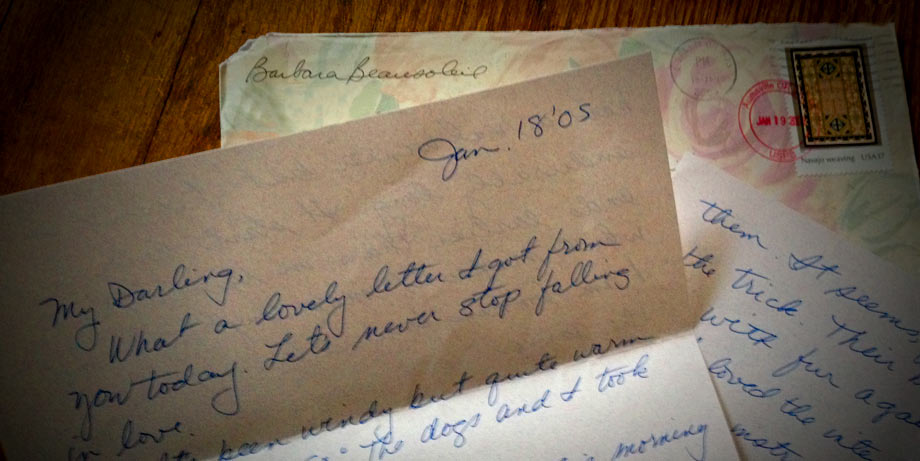 Barbara Beausoleil
PM
JAN 19 20
USPS
Navajo weaving USA 37
Jan. 18 '05
My Darling,
What a lovely letter I got from
you today. Lets never stop falling
in love.
been windy but quite warm
The dogs and I took
morning
them. It seems,
the trick. Their
with fur aga
loved the